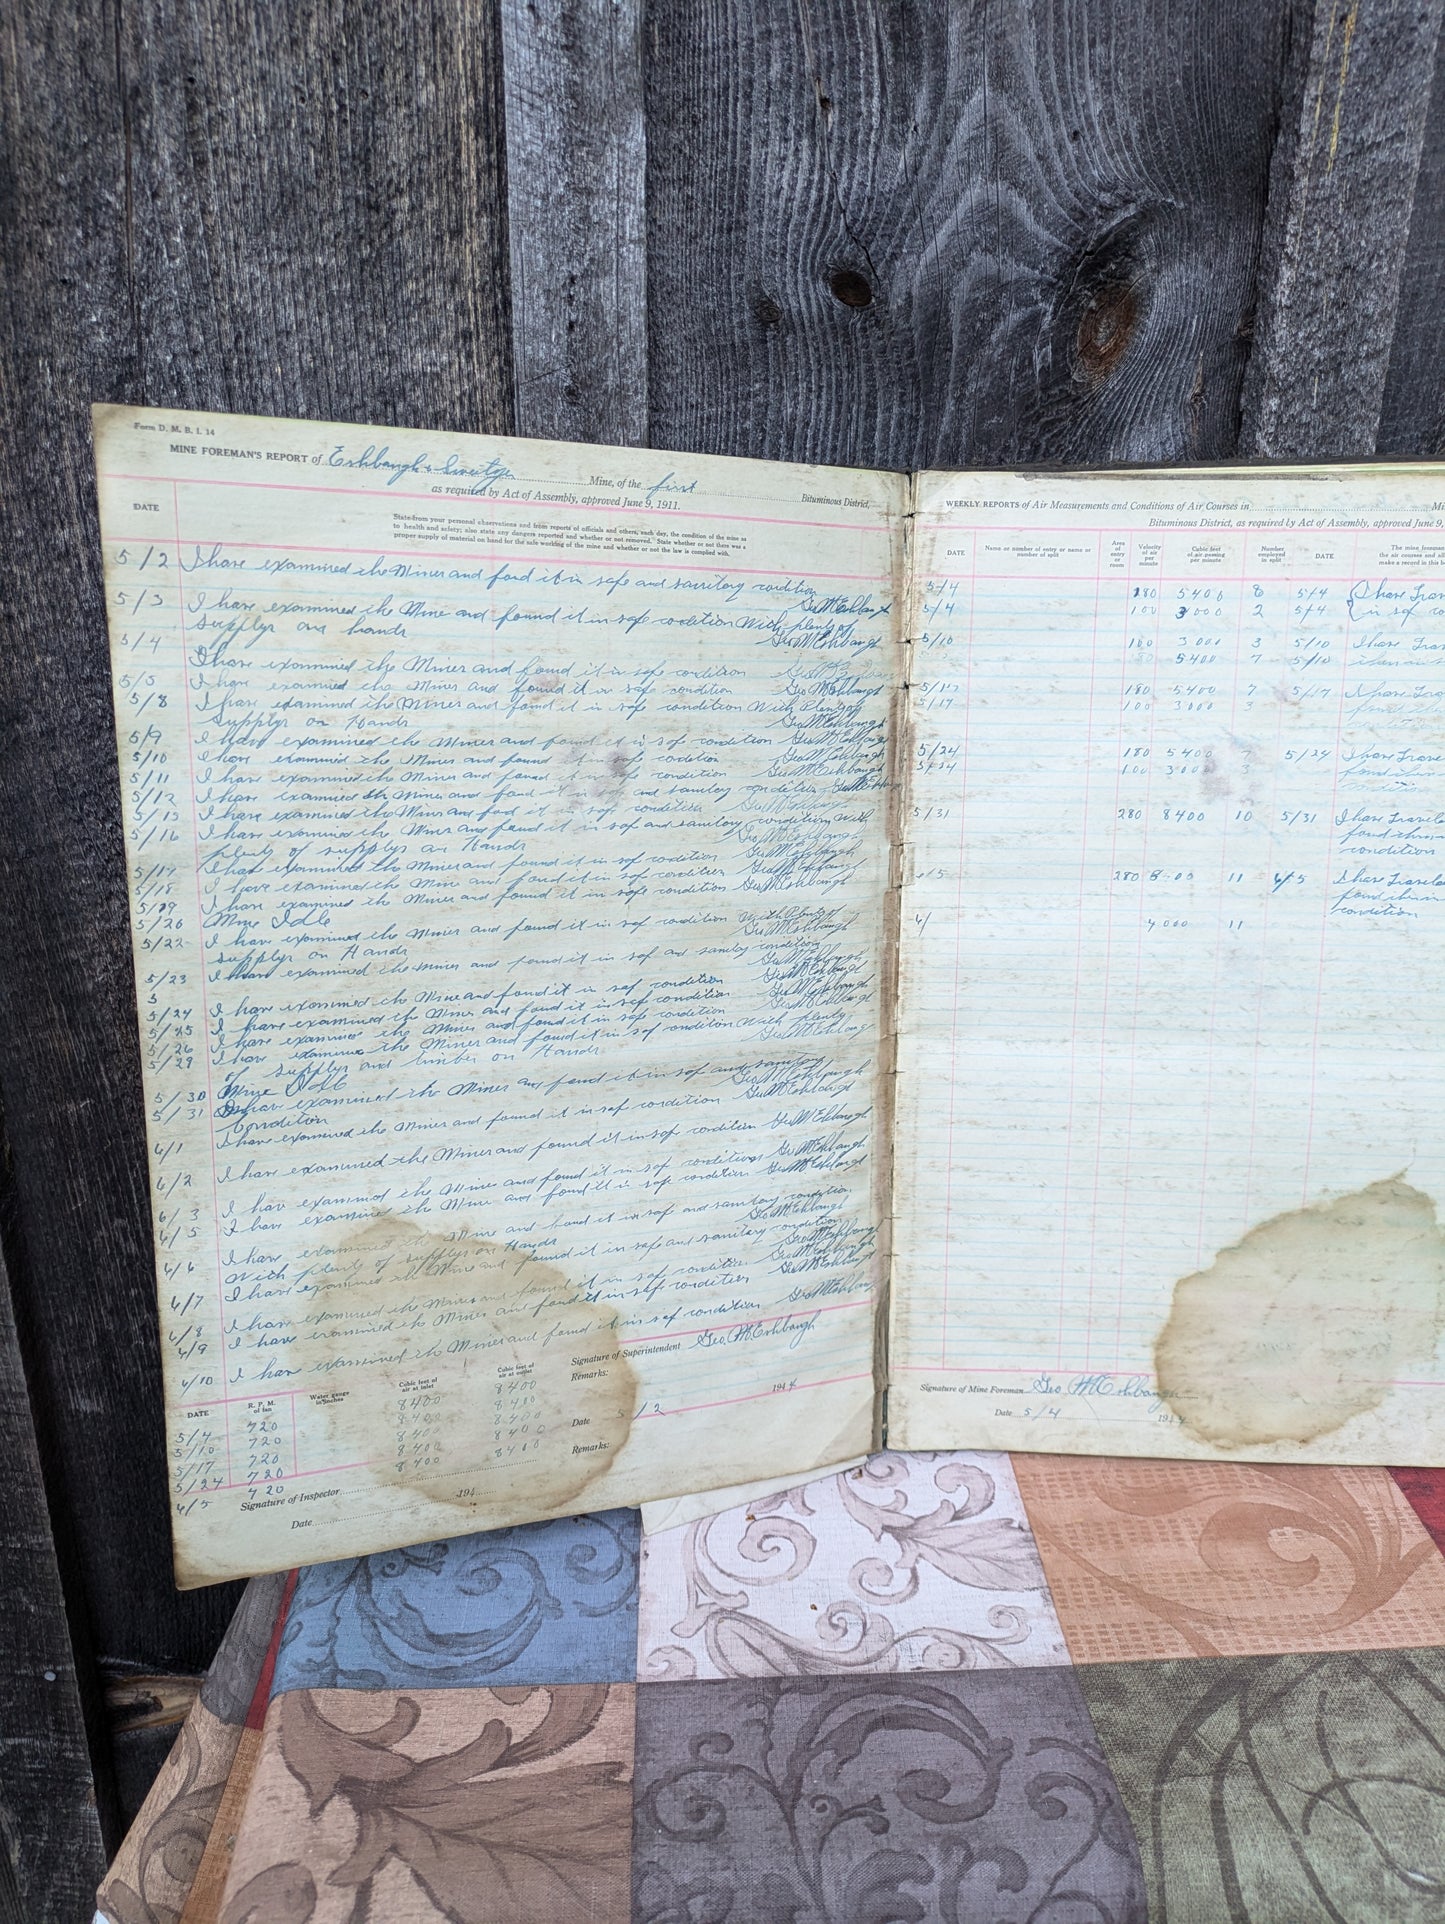 Form D. M. B. I. 14
MINE FOREMAN'S REPORT of Eshbaugh & Mine, of the first Bituminous District,
as required by Act of Assembly, approved June 9, 1911.
DATE
State from your personal observations and from reports of officials and others, each day, the condition of the mine as
to health and safety; also state any dangers reported and whether or not removed. State whether or not there was a
proper supply of material on hand for the safe working of the mine and whether or not the law is complied with.
5/2 I have examined the Mines and fond it in safe and sanitary condition
Geo M Eshbaugh
5/3 I have examined the Mine and found it in safe condition With plenty of
supplys on hands Geo. M Eshbaugh
5/4
I have examined the Mines and found it in safe condition
5/5 I have examined the Mines and found it in safe condition Geo M Eshbaugh
5/8 I have examined the Mines and found it in safe condition With Plenty of
supplys on Hands Geo M Eshbaugh
5/9 I have examined the Mines and found it in saf condition Geo M Eshbaugh
5/10 I have examined the Mines and found it in safe condition Geo M Eshbaugh
5/11 I have examined the Mines and found it in safe condition Geo M Eshbaugh
5/12 I have examined the Mines and found it in saf and sanitary condition Geo M
5/13 I have examined the Mines and fond it in saf condition Geo M Eshbaugh
5/16 I have examined the Mines and found it in saf and sanitary condition With
plenty of supplys on Hands Geo M Eshbaugh
5/17 I have examined the Mines and found it in saf condition Geo M Eshbaugh
5/18 I have examined the Mine and found it in saf condition Geo M Eshbaugh
5/19 I have examined the Mines and found it in safe condition Geo M Eshbaugh
5/20 Mine Idle
5/22 I have examined the Mines and found it in saf condition With Plenty of
supplys on Hands Geo M Eshbaugh
5/23 I have examined the Mines and found it in saf and sanitary condition
5 Geo M Eshbaugh
5/24 I have examined the Mine and found it in saf condition Geo M Eshbaugh
5/25 I have examined the Mines and found it in saf condition Geo M Eshbaugh
5/26 I have examined the Mines and found it in safe condition Geo M Eshbaugh
5/29 I have examined the Mines and found it in saf condition With plenty
of supplys and timber on Hands Geo M Eshbaugh
5/30 Mine Idle
5/31 I have examined the Mines and found it in saf and sanitary
Condition Geo M Eshbaugh
6/1 I have examined the Mines and found it in saf condition Geo M Eshbaugh
6/2 I have examined the Mines and found it in saf condition Geo M Eshbaugh
6/3 I have examined the Mines and found it in saf conditions Geo M Eshbaugh
6/5 I have examined the Mine and found it in safe condition Geo M Eshbaugh
6/6 I have examined the Mine and found it in safe and sanitary condition
With plenty of supplys on Hands Geo M Eshbaugh
6/7 I have examined the Mine and found it in safe and sanitary condition
Geo M Eshbaugh
6/8 I have examined the Mines and found it in saf condition Geo M Eshbaugh
6/9 I have examined the Mines and found it in safe condition Geo M Eshbaugh
6/10 I hav examined the Mines and found it in saf condition Geo M Eshbaugh
DATE R. P. M. of fan Water gauge in inches Cubic feet of air at inlet Cubic feet of air at outlet
5/4 720 8400 8400
5/10 720 8400 8400
5/17 720 8400 8400
5/24 720 8400 8400
6/5 720 8400 8400
Signature of Superintendent Geo. M. Eshbaugh
Remarks:
Date 5/2 1944
Remarks:
Signature of Inspector 194
Date
WEEKLY REPORTS of Air Measurements and Conditions of Air Courses in
Bituminous District, as required by Act of Assembly, approved June 9,
DATE Name or number of entry or name or number of split Area of entry or room Velocity of air per minute Cubic feet of air passing per minute Number employed in split DATE
The mine foreman
the air courses and all
make a record in this
5/4 180 5400 8 5/4 I have
5/4 100 3000 2 5/4 in saf
5/10 100 3000 3 5/10 I have
5400 7 5/10
5/17 180 5400 7 5/17 I have
5/17 100 3000 3
5/24 180 5400 7 5/24 I have
5/24 100 3000 3
5/31 280 8400 10 5/31 I have
condition
280 11 6/5 I have
condition
6/ 4000 11
Signature of Mine Foreman Geo. M Eshbaugh
Date 5/4 1944